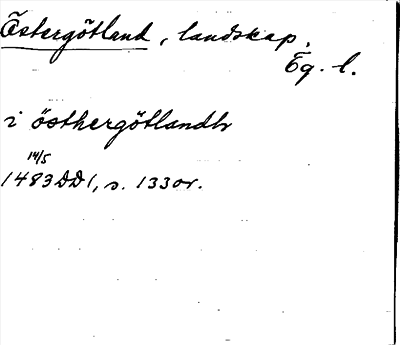 Östergötland, landskap.
Ög. l.
i östhergötlandh
14/5
1483 DD1, s. 133 or.